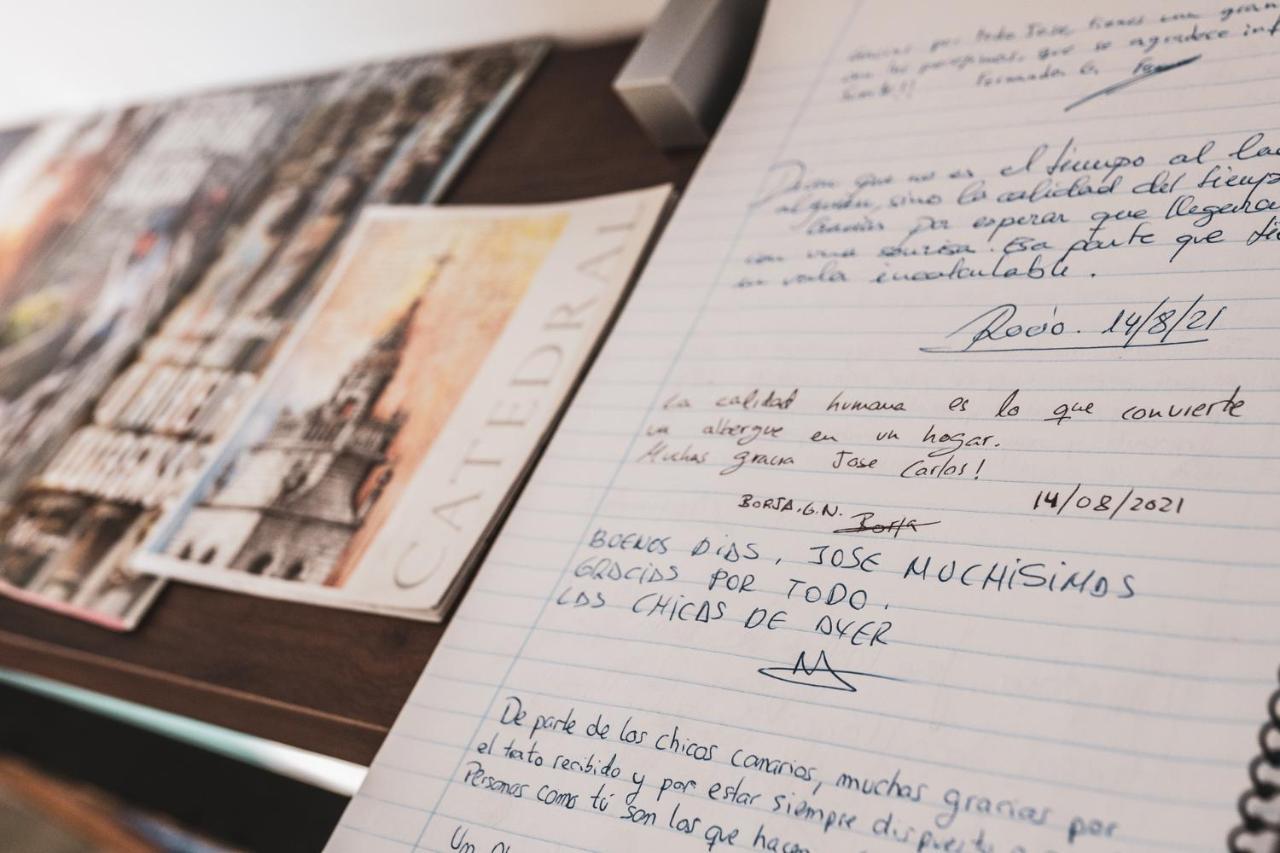 CATEDRAL
por todo Jose, tienes una gran
que se agradece inf
Fernando G.
que no es el tiempo al la
alguien, sino la calidad del tiemp
Gracias por esperar que llegara
con una sonrisa. Esa parte que
un valor incalculable.
Rocío. 14/8/21
La calidad humana es lo que convierte
un albergue en un hogar.
Muchas gracia Jose Carlos!
14/08/2021
BORJA.G.N. Borja
BUENOS DIAS, JOSE MUCHÍSIMAS
GRACIAS POR TODO.
LAS CHICAS DE AYER
De parte de los chicos canarios, muchas gracias por
el trato recibido y por estar siempre dispuesto a
Personas como tú son las que hacen
Un